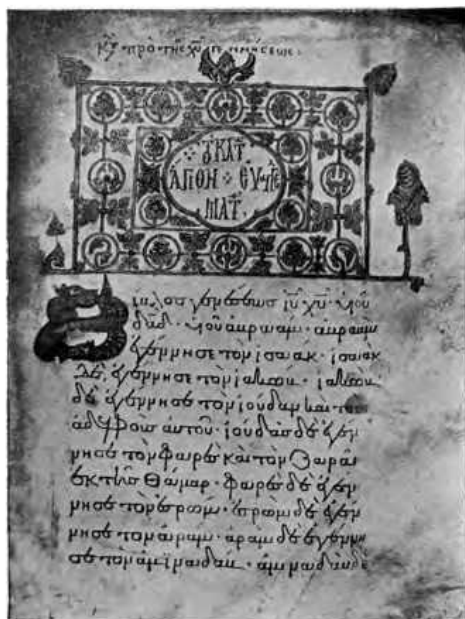 Κυ πρὸ τῆς χυ γεννήσεως
τὸ κατ
ἅγιον εὐαγγε
ματ.
Βίβλος γενέσεως ιυ χυ υἱοῦ
δαδ · υἱοῦ ἀβραάμ · ἀβραὰμ
ἐγέννησε τὸν ἰσαάκ · ἰσαὰκ
δὲ ἐγέννησε τὸν ἰακώβ · ἰακὼβ
δὲ ἐγέννησε τὸν ἰούδαν καὶ τοὺς
ἀδελφοὺς αὐτοῦ · ἰούδας δὲ ἐγέν
νησε τὸν φαρὲς καὶ τὸν ζαρὰ
ἐκ τῆς θάμαρ · φαρὲς δὲ ἐγέν
νησε τὸν ἐσρώμ · ἐσρὼμ δὲ ἐγέν
νησε τὸν ἀράμ · ἀρὰμ δὲ ἐγέννη
σε τὸν ἀμιναδάβ · ἀμιναδὰβ δὲ